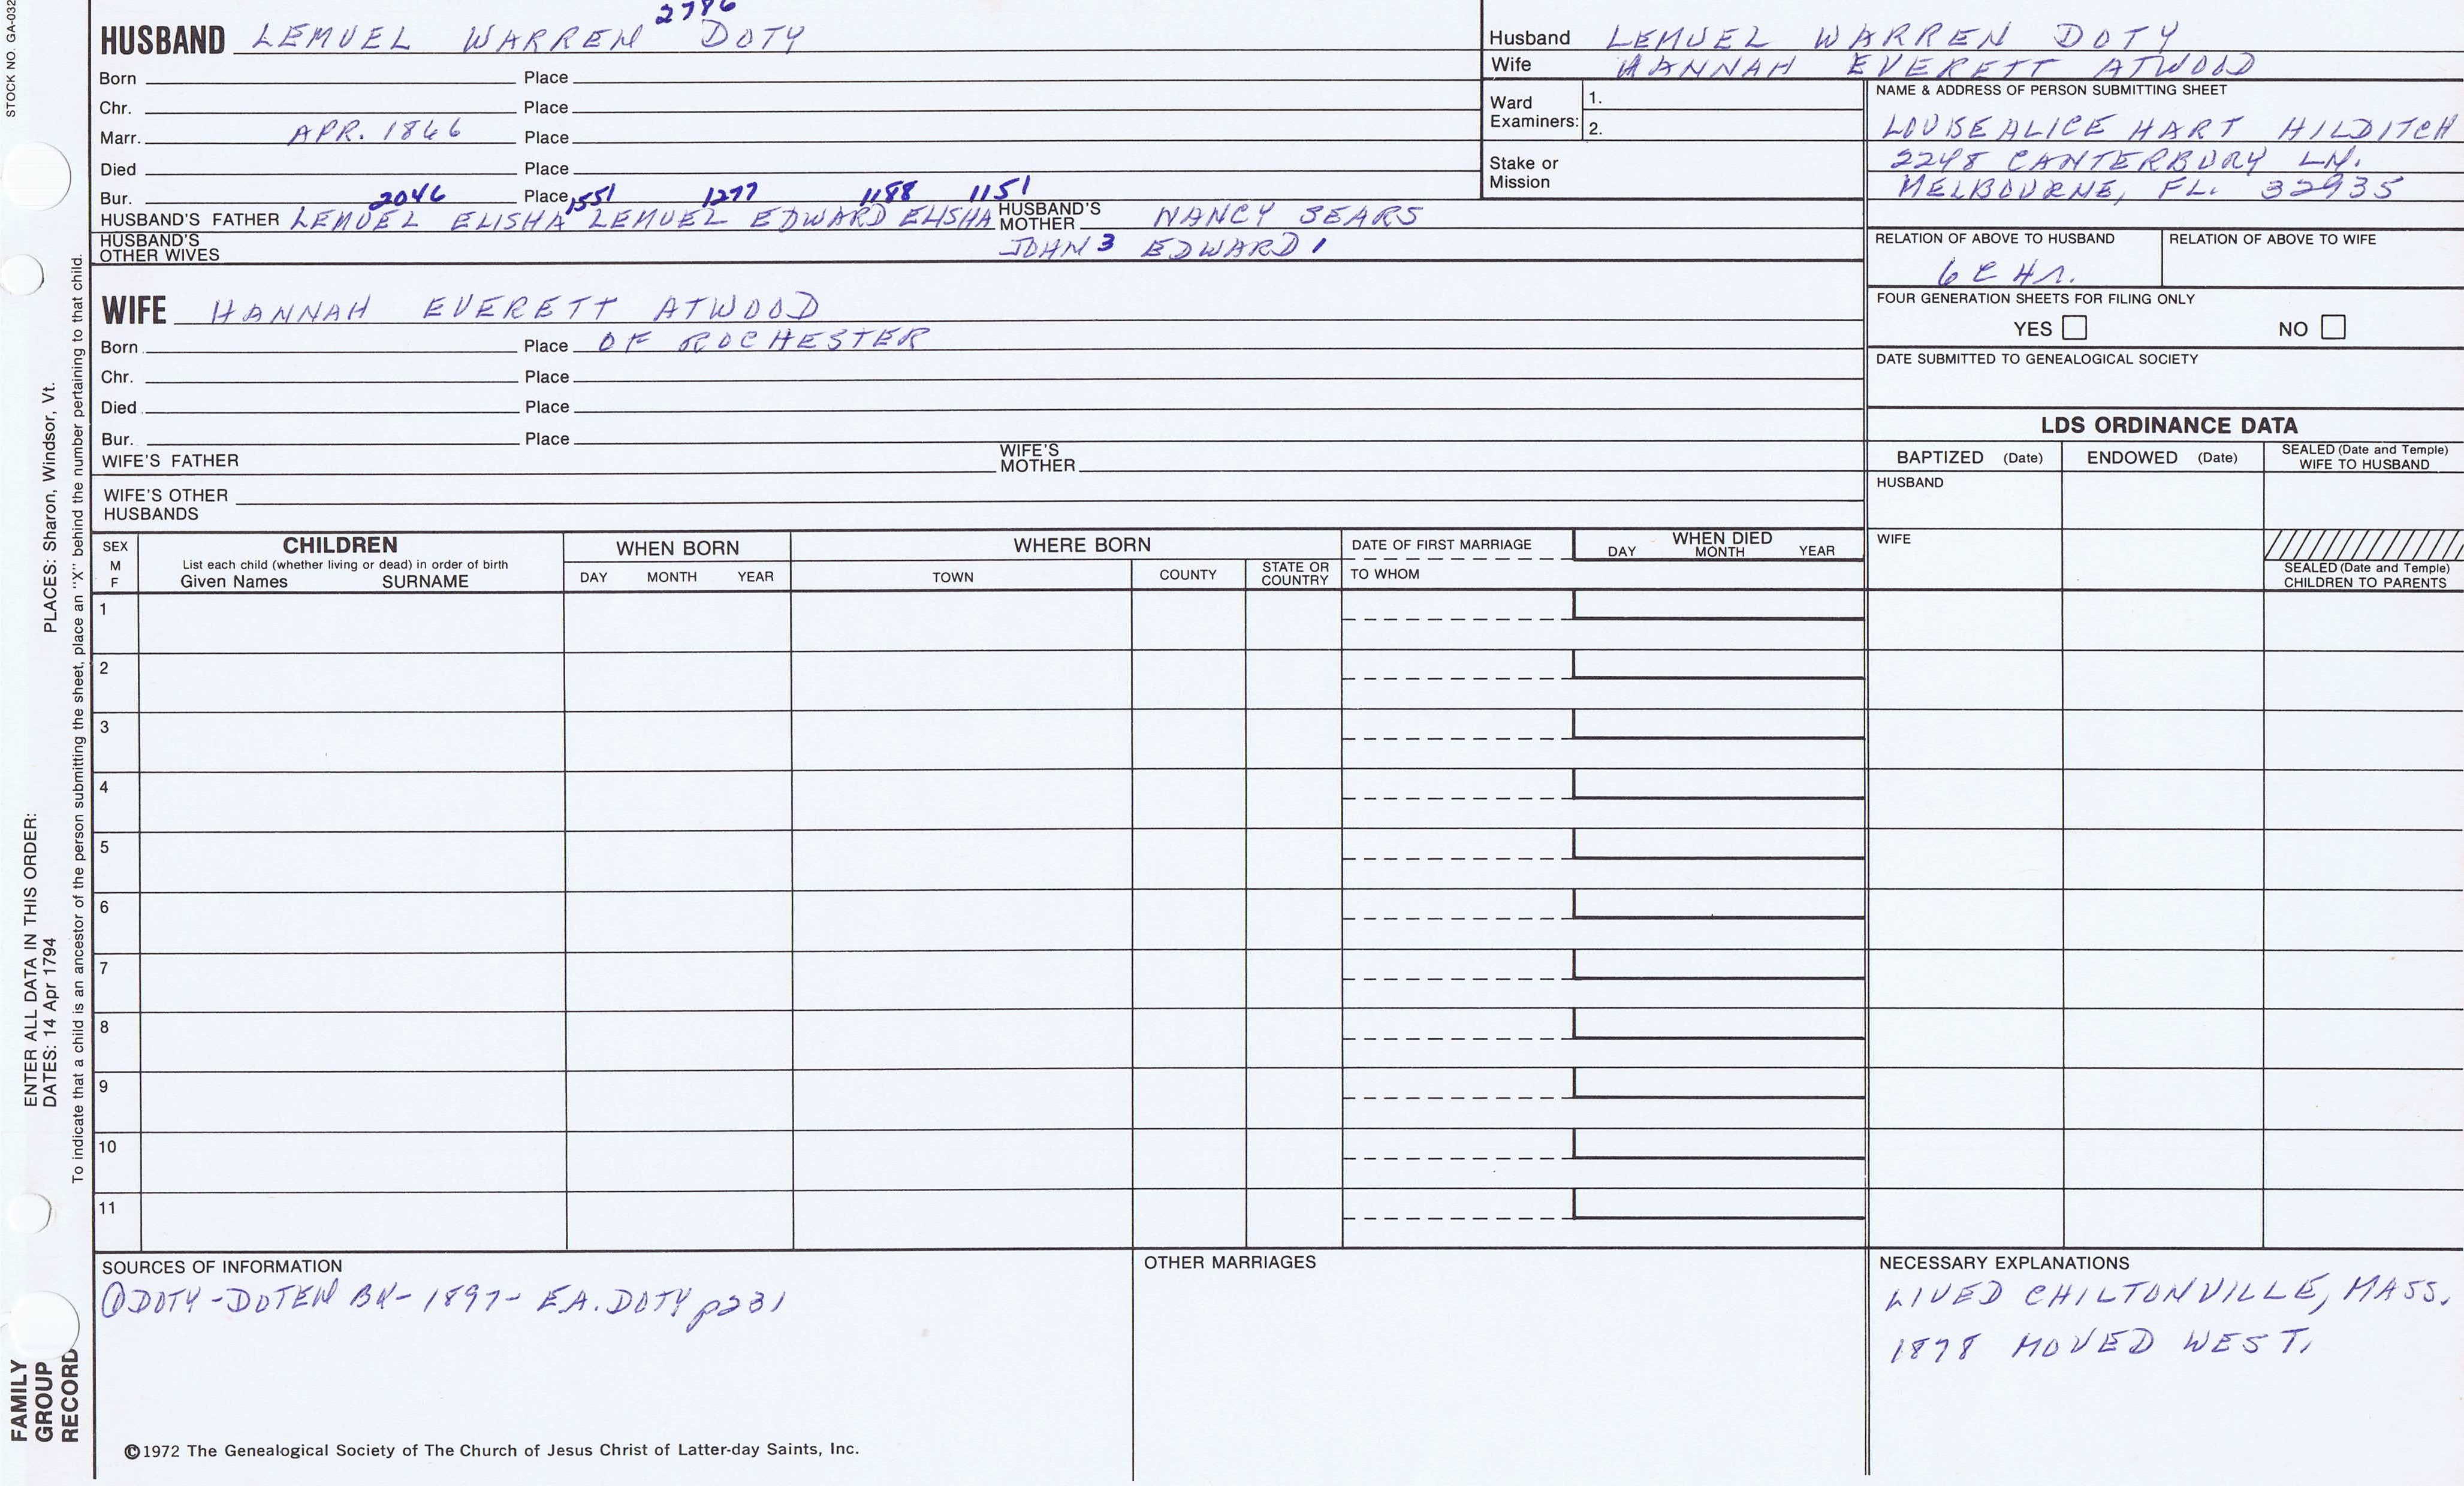 STOCK NO. GA-032
2786
HUSBAND LEMUEL WARREN DOTY
Born Place
Chr. Place
Marr. APR. 1866 Place
Died Place
Bur. Place
2046 1551 1277 1188 1151
HUSBAND'S FATHER LEMUEL ELISHA LEMUEL EDWARD ELISHA HUSBAND'S MOTHER NANCY SEARS
HUSBAND'S OTHER WIVES JOHN 3 EDWARD 1
WIFE HANNAH EVERETT ATWOOD
Born Place OF ROCHESTER
Chr. Place
Died Place
Bur. Place
WIFE'S FATHER WIFE'S MOTHER
WIFE'S OTHER HUSBANDS
Husband LEMUEL WARREN DOTY
Wife HANNAH EVERETT ATWOOD
Ward Examiners: 1.
2.
Stake or Mission
NAME & ADDRESS OF PERSON SUBMITTING SHEET
LOUISE ALICE HART HILDITCH
2248 CANTERBURY LN.
MELBOURNE, FL. 32935
RELATION OF ABOVE TO HUSBAND RELATION OF ABOVE TO WIFE
6C4r.
FOUR GENERATION SHEETS FOR FILING ONLY
YES NO
DATE SUBMITTED TO GENEALOGICAL SOCIETY
LDS ORDINANCE DATA
BAPTIZED (Date) ENDOWED (Date) SEALED (Date and Temple) WIFE TO HUSBAND
HUSBAND
WIFE
SEALED (Date and Temple) CHILDREN TO PARENTS
SEX M F
CHILDREN
List each child (whether living or dead) in order of birth
Given Names SURNAME
WHEN BORN
DAY MONTH YEAR
WHERE BORN
TOWN COUNTY STATE OR COUNTRY
DATE OF FIRST MARRIAGE
TO WHOM
WHEN DIED
DAY MONTH YEAR
1
2
3
4
5
6
7
8
9
10
11
SOURCES OF INFORMATION
① DOTY-DOTEN BK- 1897- E.A. DOTY p231
OTHER MARRIAGES
NECESSARY EXPLANATIONS
LIVED CHILTONVILLE, MASS.
1878 MOVED WEST.
©1972 The Genealogical Society of The Church of Jesus Christ of Latter-day Saints, Inc.
ENTER ALL DATA IN THIS ORDER:
DATES: 14 Apr 1794 PLACES: Sharon, Windsor, Vt.
To indicate that a child is an ancestor of the person submitting the sheet, place an "X" behind the number pertaining to that child.
FAMILY
GROUP
RECORD